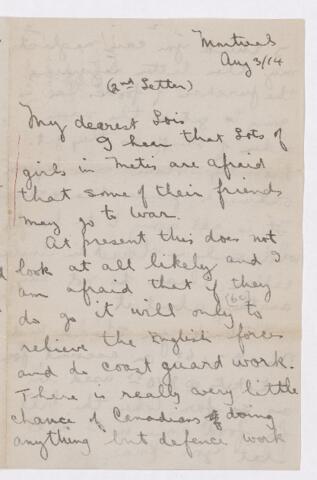 Montreal
Aug 3/14
(2nd Letter)
My dearest Lois
I hear that Lots of
girls in Metis are afraid
that some of their friends
may go to war.
At present this does not
look at all likely and I
am afraid that if they
do go it will only to
(be)
relieve the English forces
and do coast guard work.
There is really very little
chance of Canadians doing
anything but defence work